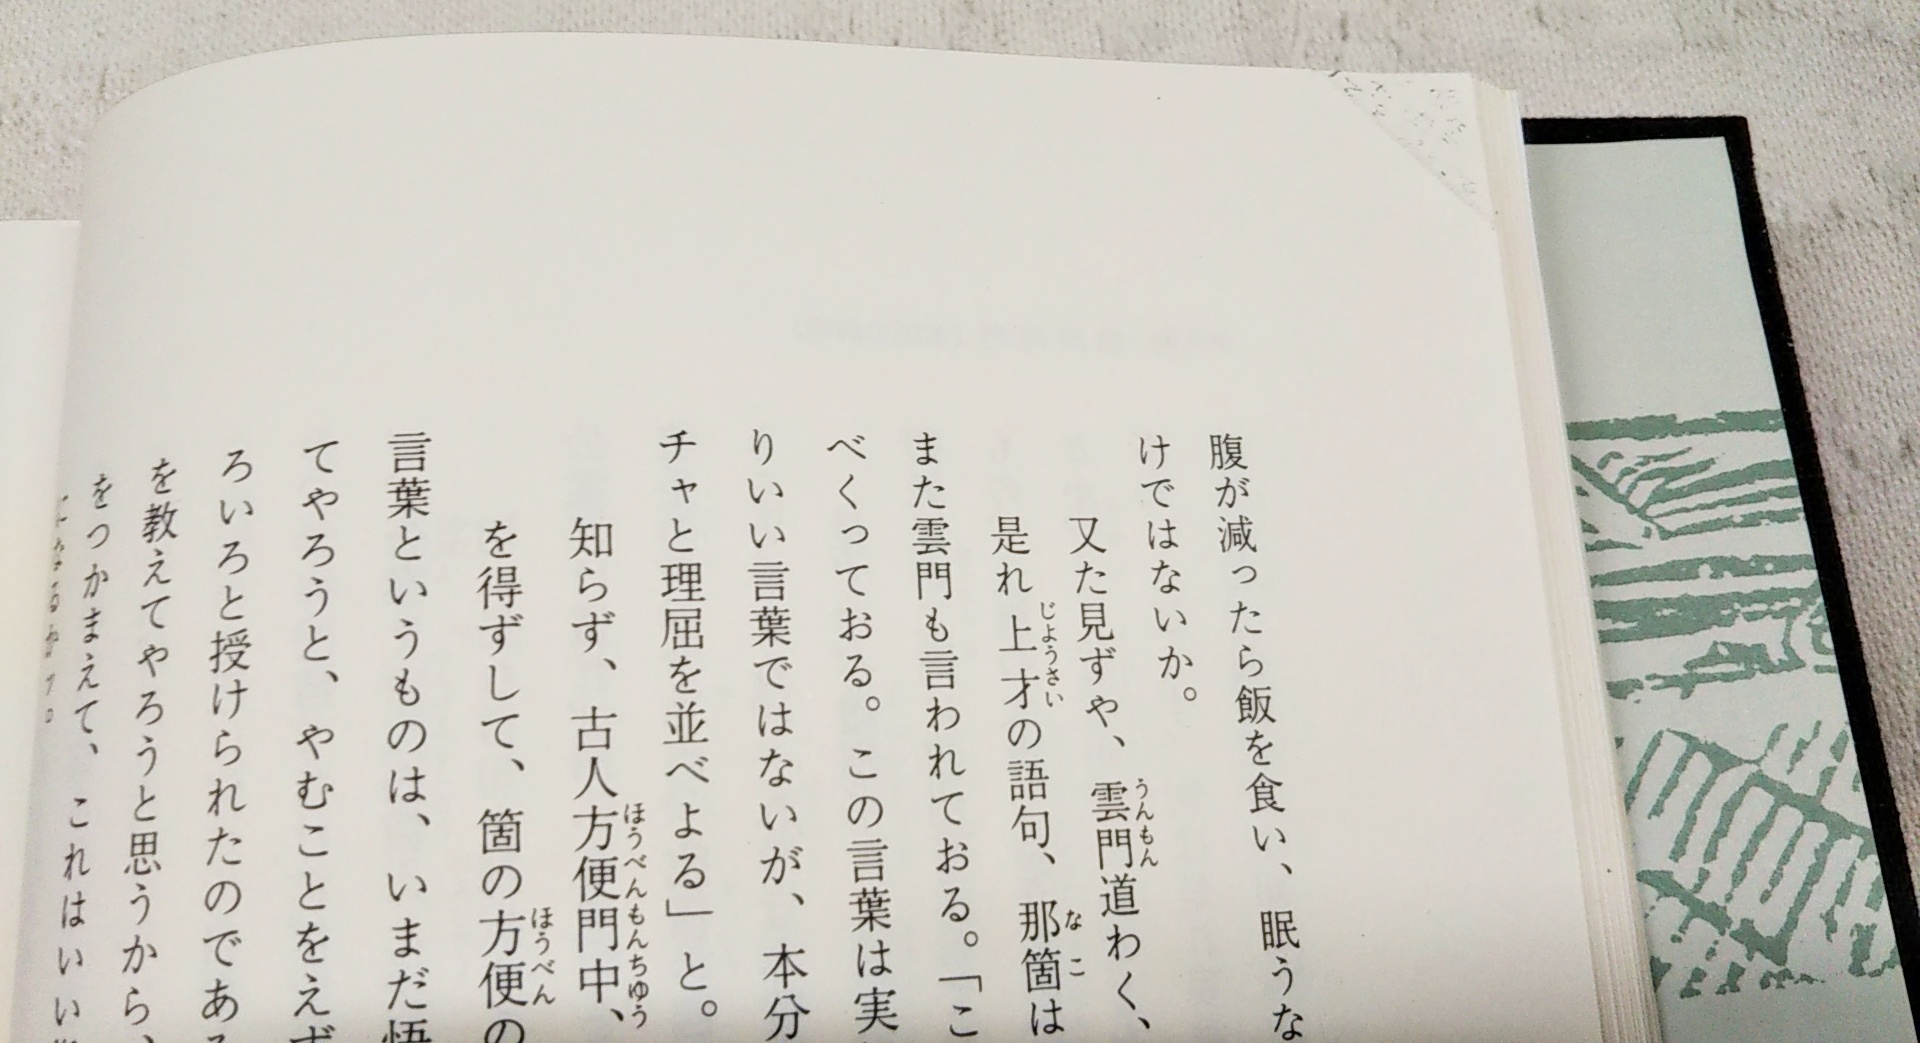 腹が減ったら飯を食い、眠うな
けではないか。
又た見ずや、雲門道わく、
是れ上才の語句、那箇は
また雲門も言われておる。「こ
べくっておる。この言葉は実
りいい言葉ではないが、本分
チャと理屈を並べよる」と。
知らず、古人方便門中、
を得ずして、箇の方便の
言葉というものは、いまだ悟
てやろうと、やむことをえず
ろいろと授けられたのである
を教えてやろうと思うから、
をつかまえて、これはいい